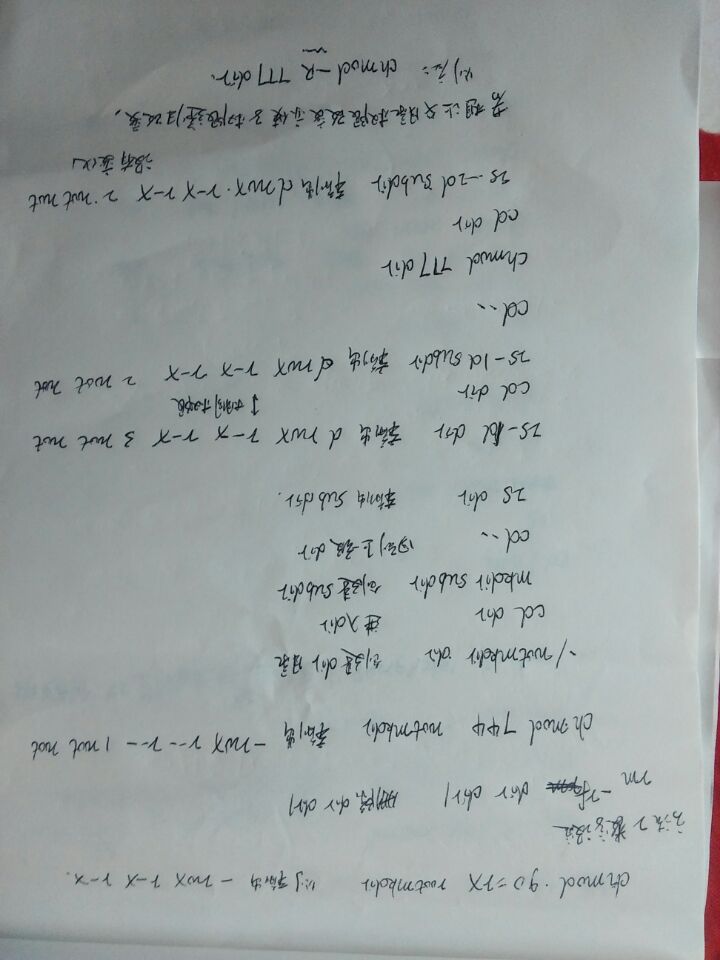 chmod · go=rx rootmkdir 则输出 -rwx r-x r-x.
方法2 数字设定
rm -rf dir dir1 删除dir dir1
chmod 744 rootmkdir 输出 -rwx r-- r-- 1 root root
./rootmkdir dir 创建dir目录
cd dir 进入dir
mkdir subdir 创建subdir
cd.. 回到上一级dir
ls dir 输出 subdir.
ls-ld dir 输出 d rwx r-x r-x 3 root root
cd dir ↕相同权限
ls-ld subdir 输出 d rwx r-x r-x 2 root root
cd..
chmod 777 dir
cd dir
ls -ld subdir 输出 d rwx·r-x r-x 2·root root
没有变化
若想让父目录权限改变亦使子权限递归改变,
则应: chmod -R 777 dir.